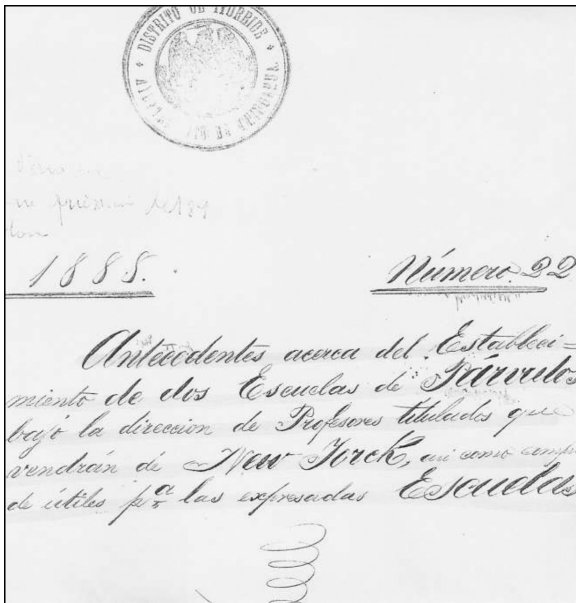 DISTRITO DE ITURBIDE
1885.
Número. 22
Antecedentes acerca del Estableci=
miento de dos Escuelas de Párvulos
bajo la direccion de Profesores titulados que
vendrán de New Yorck, asi como
de útiles p.ª las expresadas Escuelas